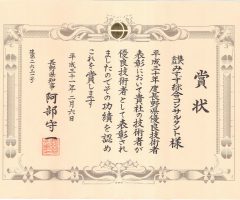 賞状
みすず綜合コンサルタント様
平成三十年度長野県優良技術者
表彰において貴社の技術者が
優良技術者として表彰され
ましたのでその功績を認め
これを賞します
平成三十一年二月六日
長野県知事 阿部守一